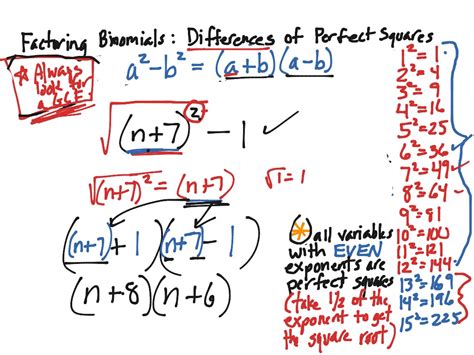 Factoring Binomials: Differences of Perfect Squares
* Always look for a GCF!
a²-b² = (a+b)(a-b)
√(n+7)² - 1 ✓
√(n+7)² = (n+7) √1 = 1
((n+7)+1)((n+7)-1)
(n+8)(n+6)
* all variables
with EVEN
exponents are
perfect squares
(take 1/2 of the
exponent to get
the square root)
1²=1
2²=4
3²=9
4²=16
5²=25
6²=36
7²=49
8²=64
9²=81
10²=100
11²=121
12²=144
13²=169
14²=196
15²=225